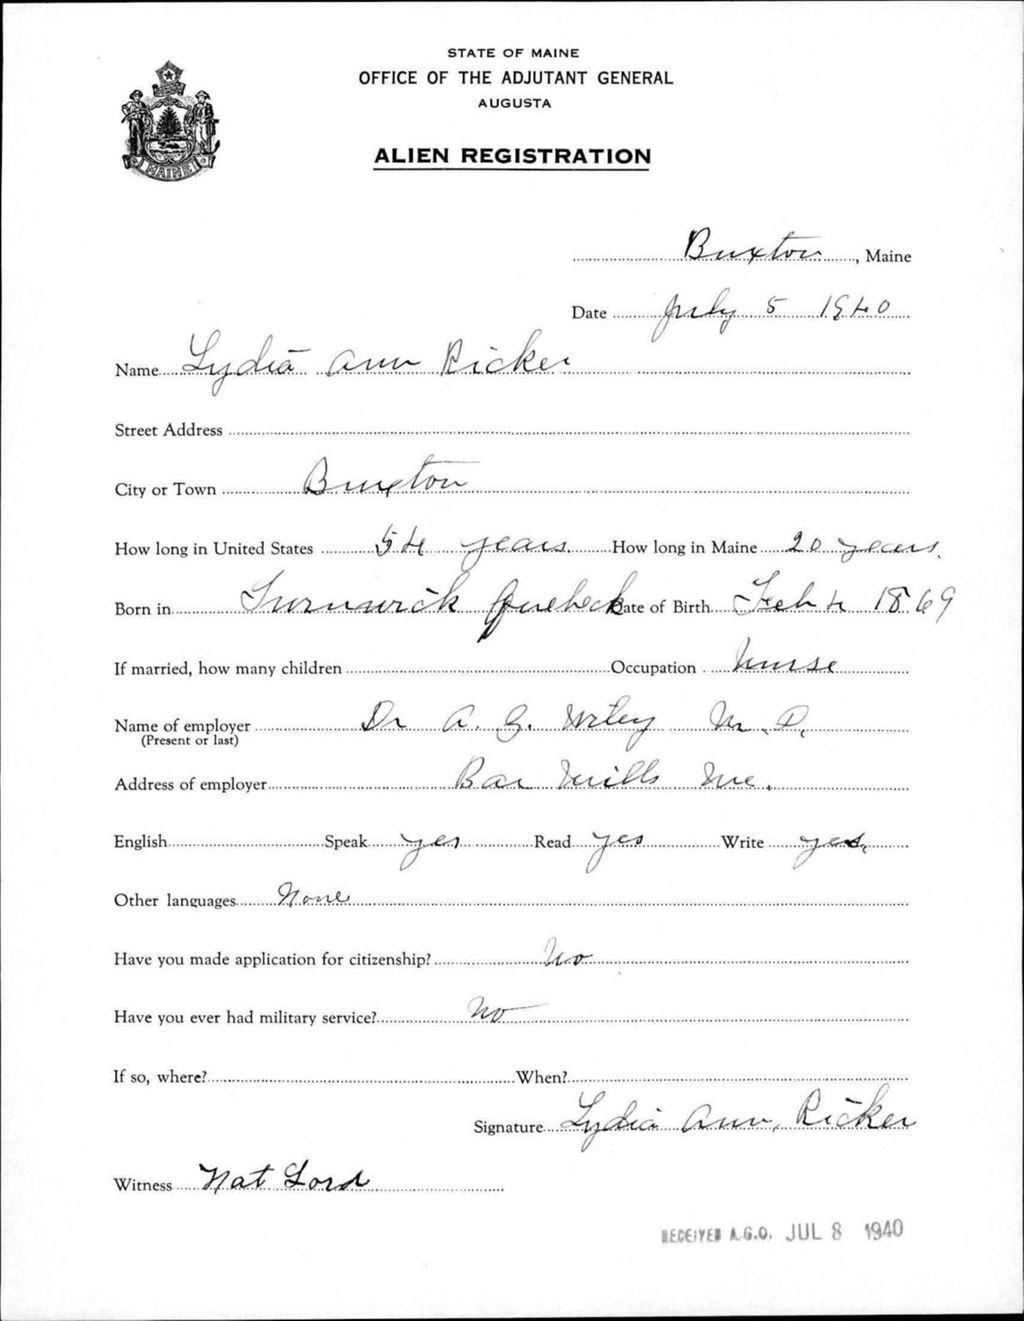 STATE OF MAINE
OFFICE OF THE ADJUTANT GENERAL
AUGUSTA
ALIEN REGISTRATION
MAINE
Buxton, Maine
Date July 5 1940
Name Lydia Ann Ricker
Street Address
City or Town Buxton
How long in United States 54 years How long in Maine 20 years.
Born in Quebeck Date of Birth Feb 4 1869
If married, how many children Occupation Nurse
Name of employer Dr A. G. Wiley M.D.
(Present or last)
Address of employer Bar Mills Me.
English Speak yes Read yes Write yes.
Other languages None
Have you made application for citizenship? No
Have you ever had military service? No
If so, where? When?
Signature Lydia Ann Ricker
Witness Nat Lord
RECEIVED A.G.O. JUL 8 1940